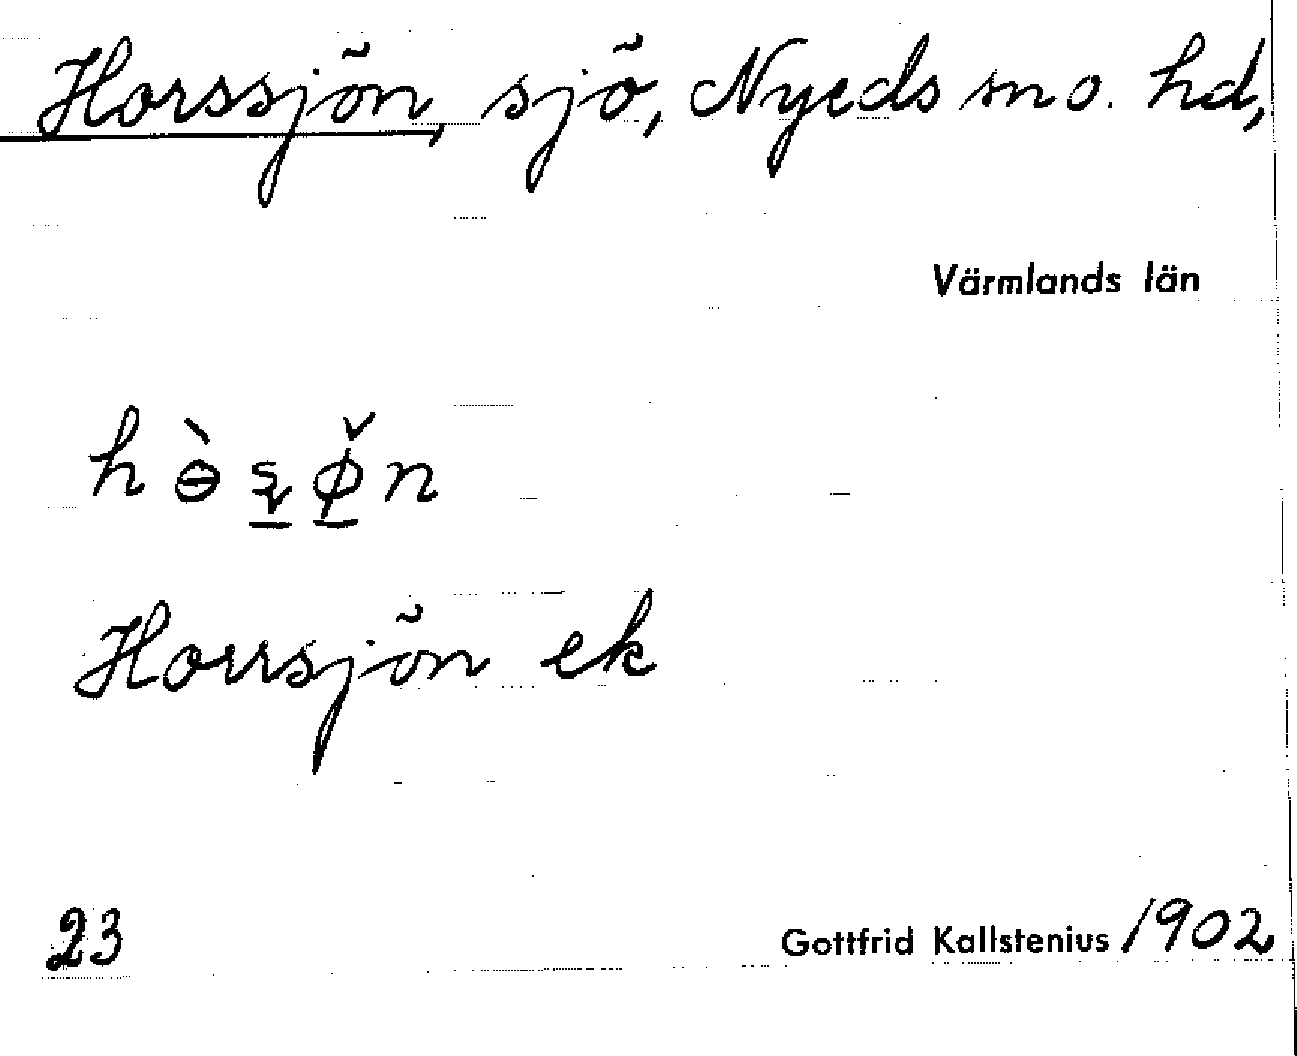 Horssjön, sjö, Nyeds sn o. hd,
Värmlands län
Horrsjön ek
23 Gottfrid Kallstenius 1902